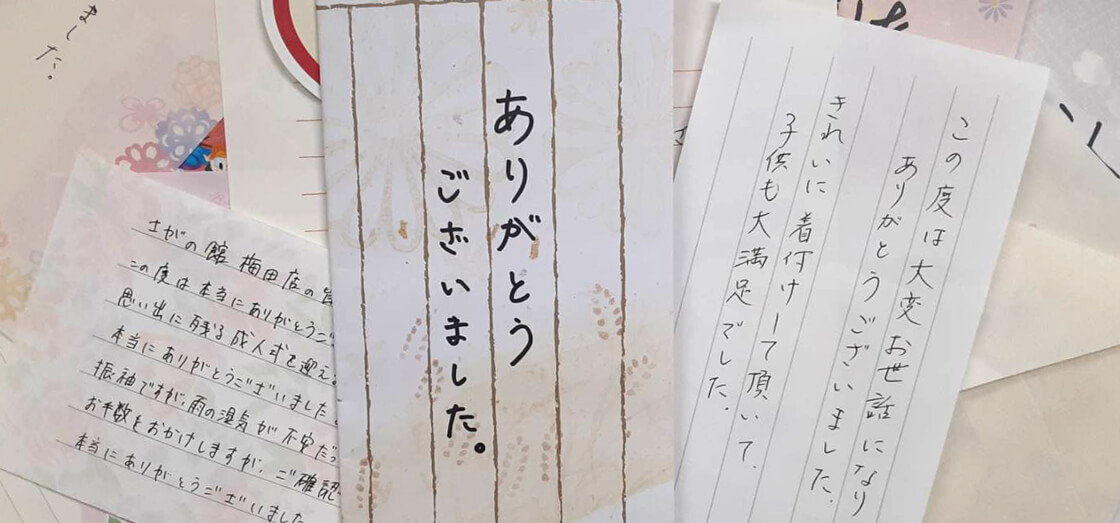 ました。
さがの館 梅田店の皆
この度は本当にありがとうご
思い出に残る成人式を迎え
本当にありがとうございました
振袖ですが、雨の湿気が不安だっ
お手数をおかけしますが、ご確認
本当にありがとうございました
ありがとう
ございました。
この度は大変お世話になり
ありがとうございました。
きれいに着付けして頂いて、
子供も大満足でした。